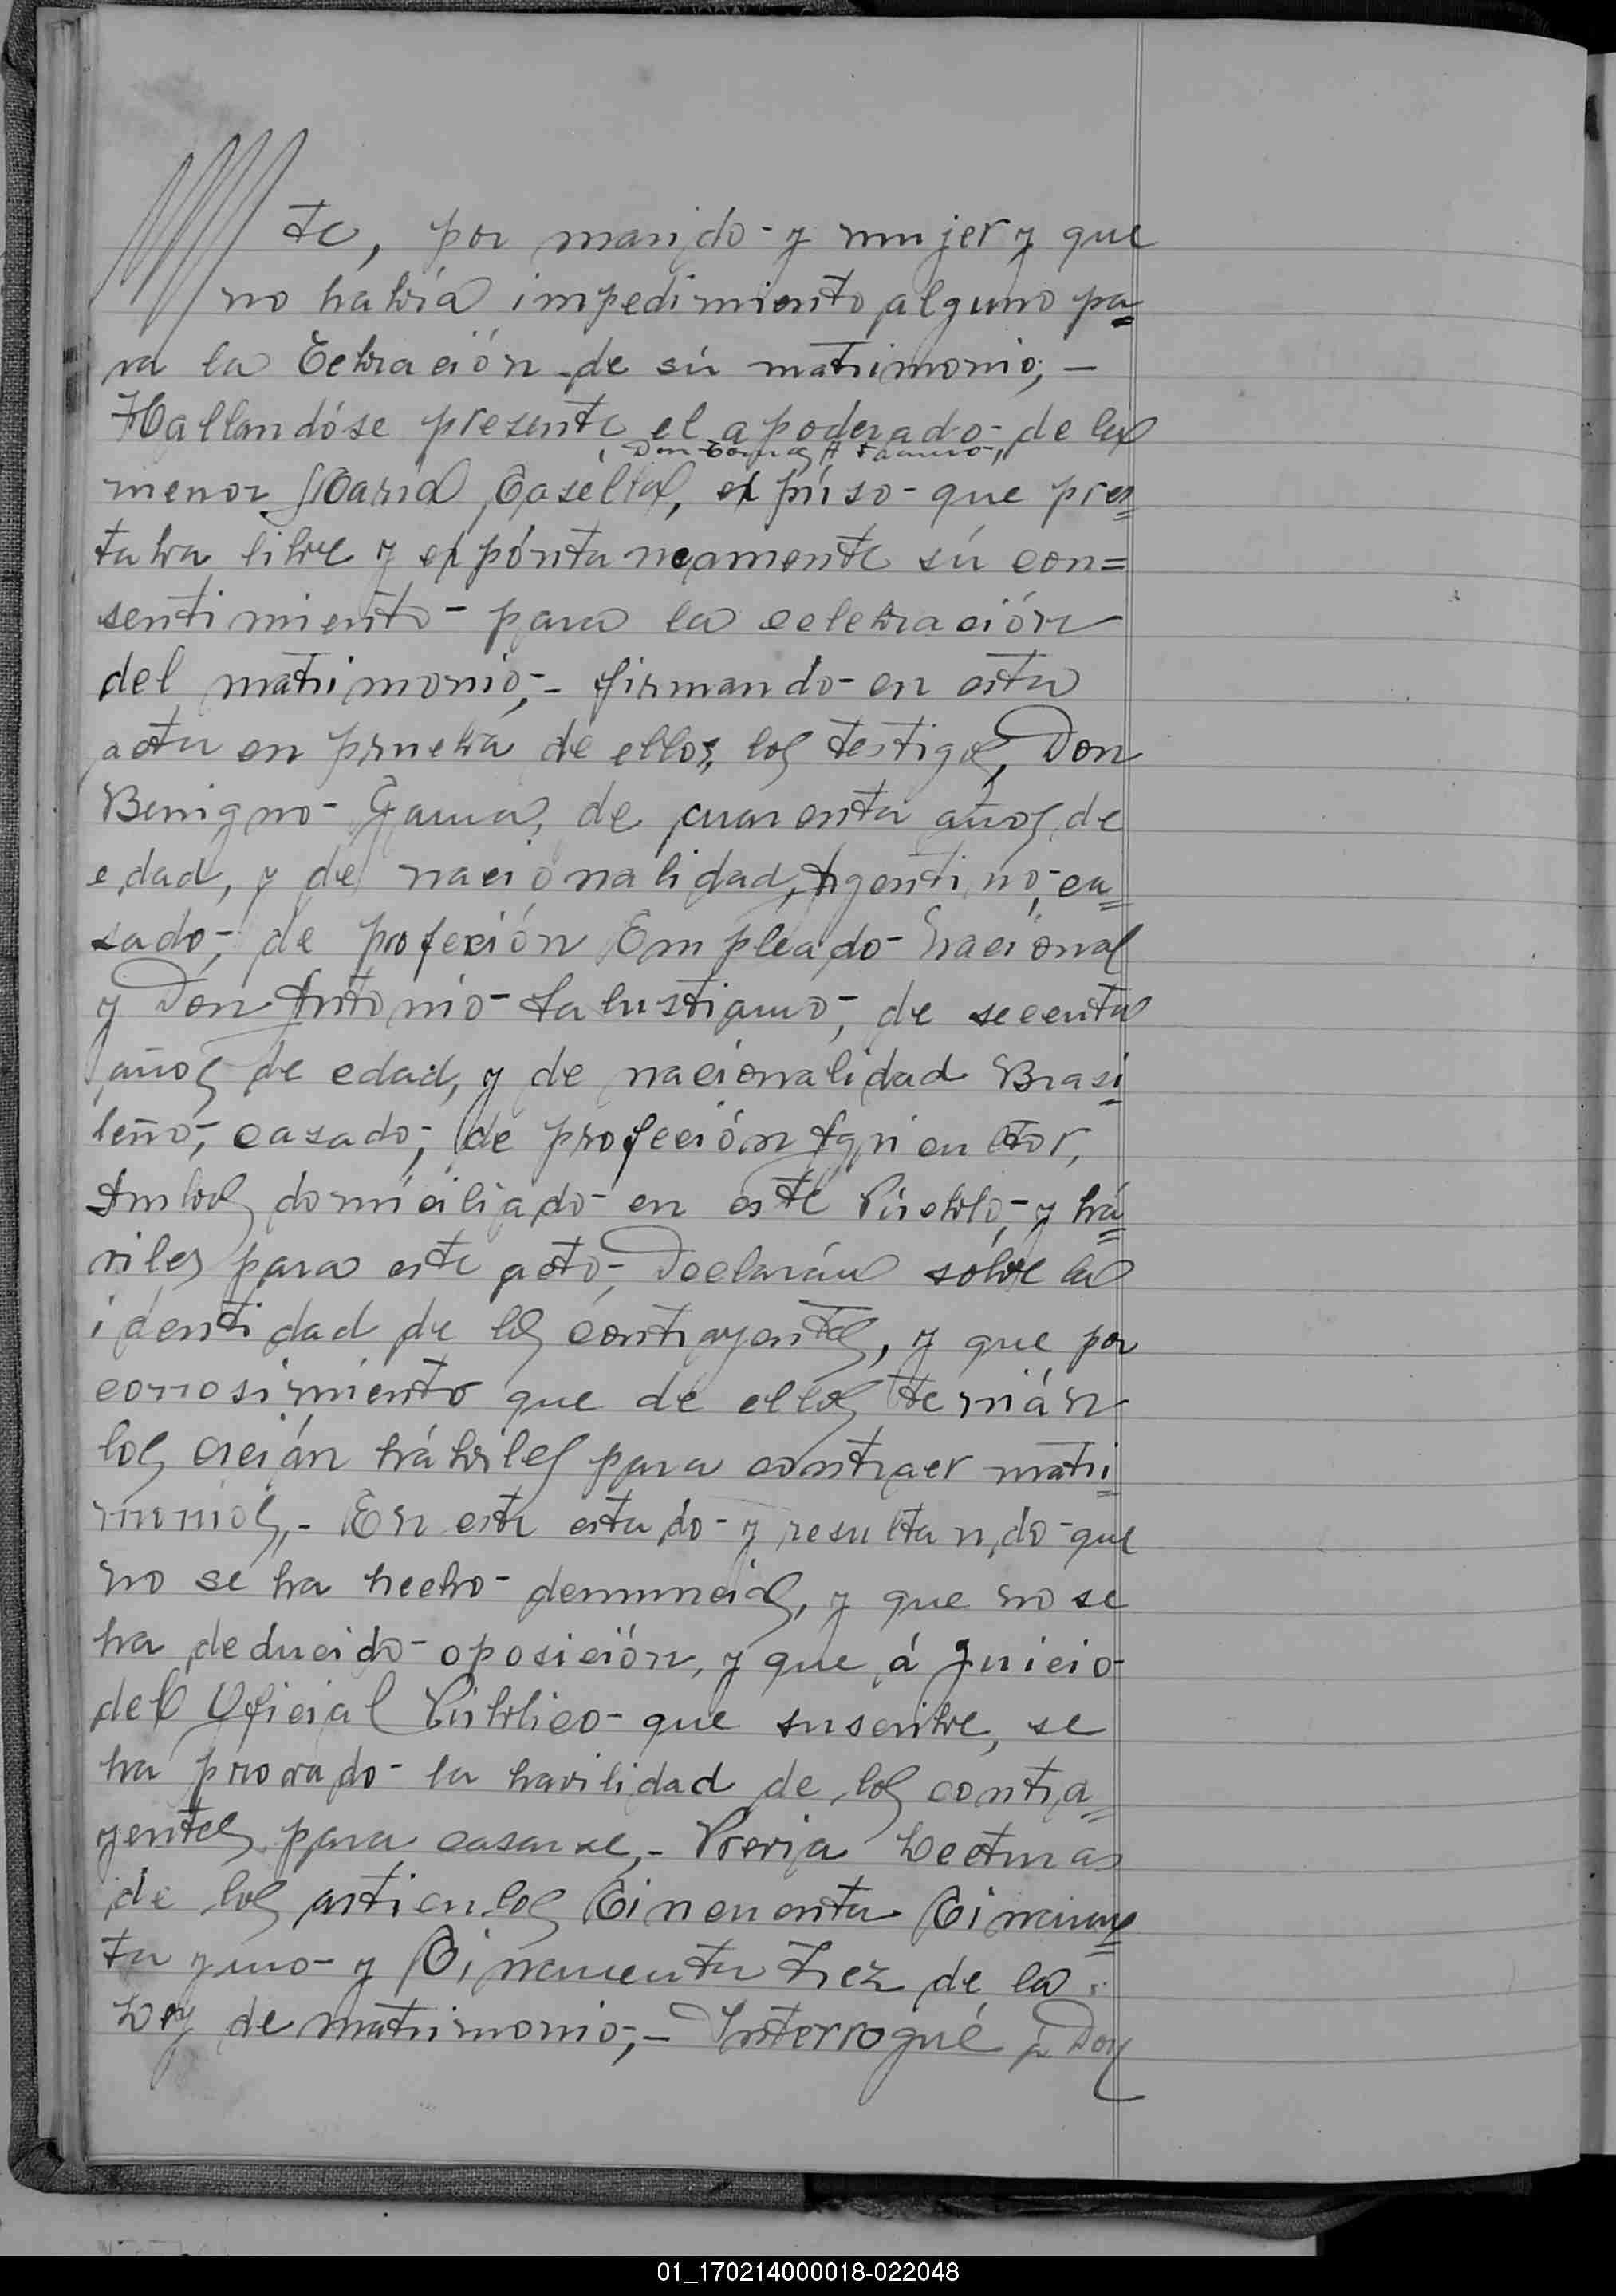 te, por marido- y mujer y que
no habia impedimiento alguno pa=
ra la Cebración de sú matrimonio,-
Hallandóse presente el apoderado- de la
, Don
menor Maria Casélla, expúso- que pres=
taba libre y expóntaneamente sú con=
sentimiento- para la celebración
del matrimonio,- firmando- en esta
acta en prueba de ellos, los testigos, Don
Benigno- Gauna, de cuarenta años de
edad, y de nacionalidad, Argentino, ca=
sado,- de profeción Empleado- Nacional
y Don Antonio- Salustiano,- de secenta
años de edad, y de nacionalidad Brasi=
leño,- casado,- de profeción Agricultor,
Ambos domiciliado- en este Púeblo,- y há=
viles para este acto,- Declarán sóbre la
identidad de los contrayentes, y que por
conosimiento que de ellos tenián
los creián hábiles para contraer matri=
monios,- En este estado- y resultando- que
no se ha hecho- denuncias, y que no se
ha deducido- oposición, y que á juicio-
del Oficial Público- que suscribe, se
ha provado- la havilidad de los contra=
yentes para casarse,- Previa Lecturas
de los articulos Cincuenta Cincuen=
ta y uno- y Cincuenta Trez de la
Ley de matrimonio,- Interrogué á Don
01_170214000018-022048